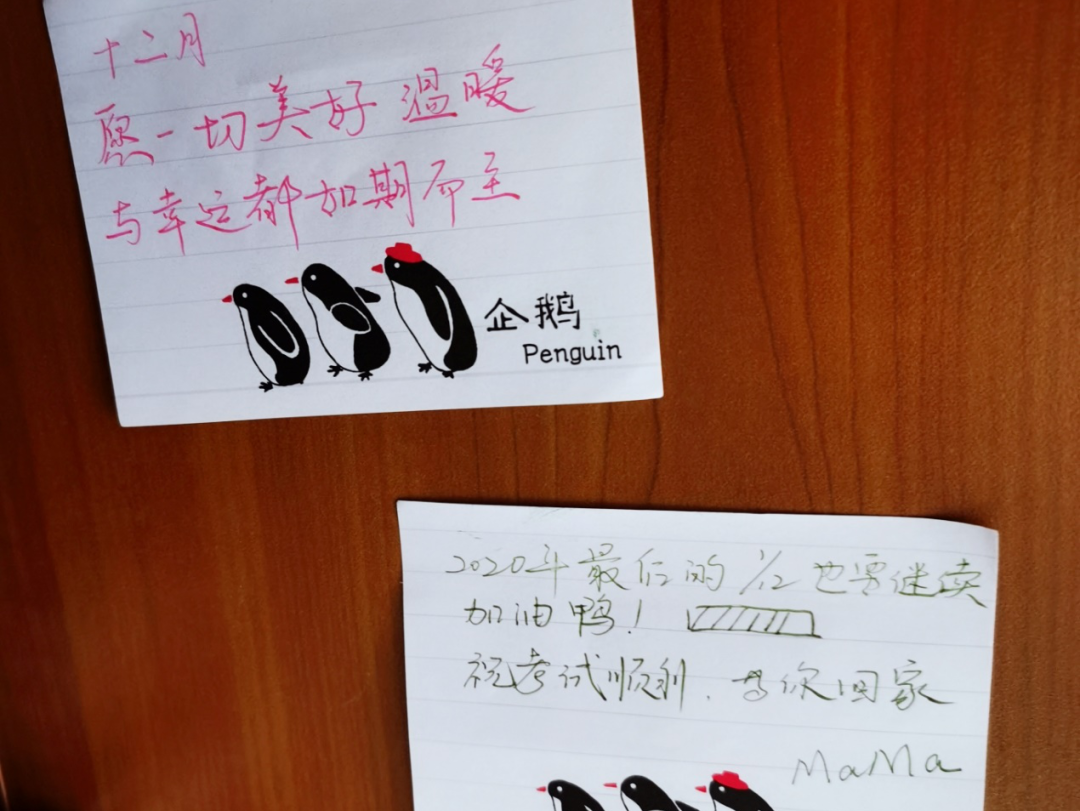 十二月
愿一切美好温暖
与幸运都如期而至
企鹅
Penguin
2020年最后的1/12也要继续
加油鸭!
祝考试顺利.等你回家
MaMa